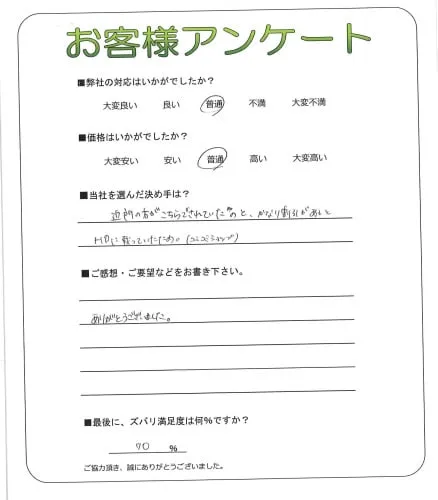 お客様アンケート
■弊社の対応はいかがでしたか？
大変良い 良い 普通 不満 大変不満
■価格はいかがでしたか？
大変安い 安い 普通 高い 大変高い
■当社を選んだ決め手は？
近所の方がこちらでされていたのと、かなり割引があると
HPに載っていたため
■ご感想・ご要望などをお書き下さい。
ありがとうございました。
■最後に、ズバリ満足度は何％ですか？
70 ％
ご協力頂き、誠にありがとうございました。